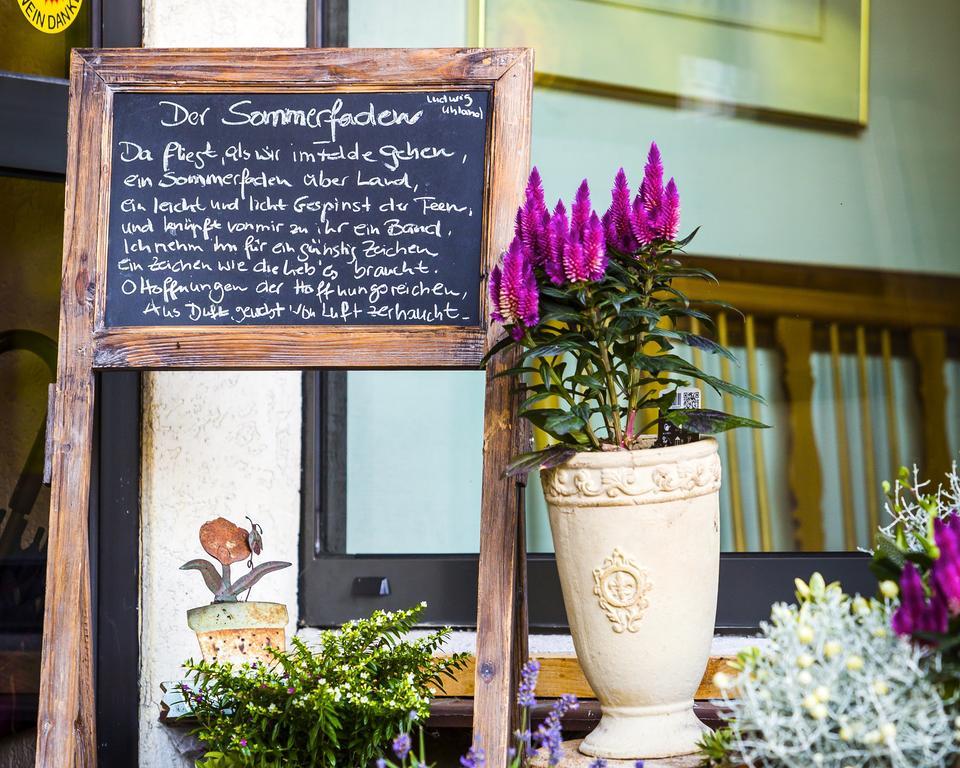 NEIN DANKE
Der Sommerfaden
Ludwig
Uhland
Da fliegt, als wir im Felde gehen,
ein Sommerfaden über Land,
ein leicht und licht Gespinst der Feen,
und knüpft von mir zu ihr ein Band.
Ich nehm ihn für ein günstig Zeichen
Ein Zeichen wie die Lieb' es braucht.
O Hoffnungen der Hoffnungsreichen,
Aus Duft gewebt von Luft zerhaucht.